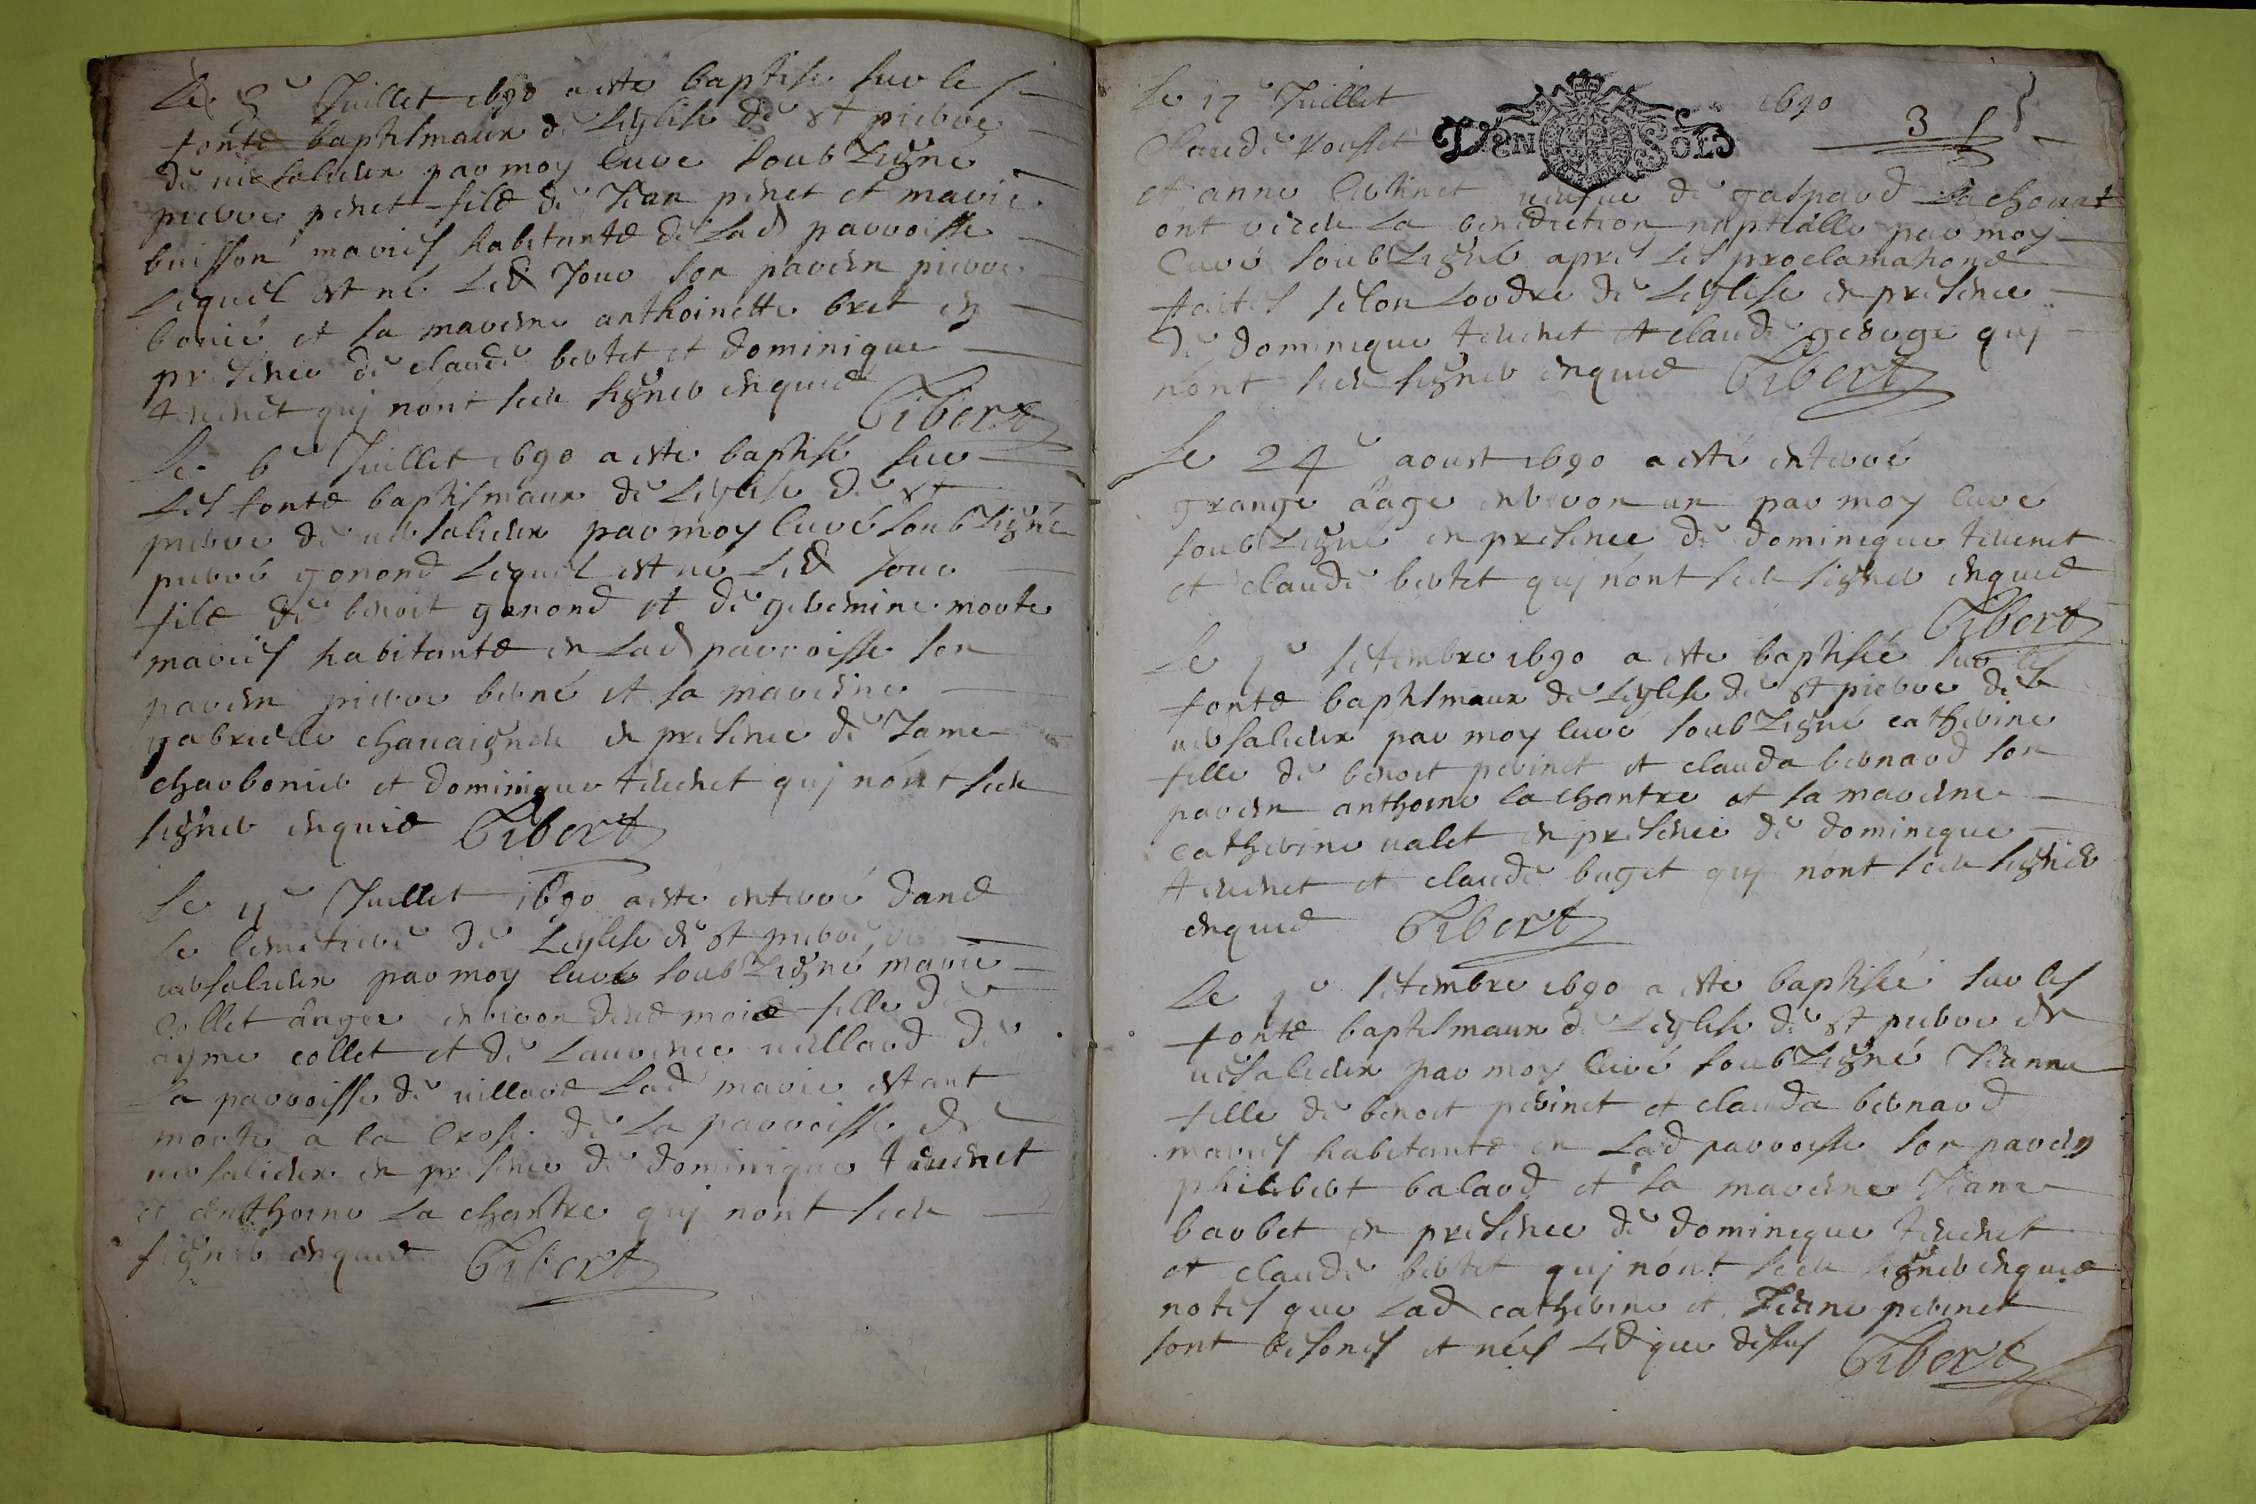 Le 5e Juillet 1690 a este baptise sur les
fonts baptismaux de Leglise de st pierre
de versalieux par moy curé soubsigné
pierre penet fils de Jean penet et marie
buisson mariés habitants de Lad parroisse
Lequel est né Led Jour son parein pierre
et sa mareine anthoinette bret en
presence de claude bertet et dominique
tevenet qui nont sceu signer enquis Gibert
Le 6e Juillet 1690 a este baptisé sur
Les fonts baptismaux de Leglise de st
pierre de versalieux par moy curé soubsigné
pierre gonond Lequel est né Led Jour
fils de benoit gonond et de geremine morte
mariés habitants en Lad parroisse son
parein pierre berné et sa mareine
gabrielle en presence de Jame
charbonier et dominique tevenet qui nont sceu
signer enquis Gibert
Le 11e Juillet 1690 a este enterré dans
le cemetiere de Leglise de st pierre de
versalieux par moy curé soubsigné marie
Collet âagee environ deus mois fille de
ayme collet et de Laurence villard de
La parroisse de villars Lad marie estant
morte a la Crose de La parroisse de
versalieux en presence de dominique tevenet
et anthoine La chantre qui nont sceu
signer enquis Gibert
Le 17e Juillet 1690 3 s
Claude
DEN SOLS
et anne veufve de gaspard
ont receu La benediction nuptialle par moy
Curé soubsigné apres Les proclamations
faites selon Lordre de Leglise en presence
de dominique tevenet et claude george qui
nont sceu signer enquis Gibert
Le 24e aoust 1690 a esté enterré
grange âage environ un par moy curé
soubsigné en presence de dominique tevenet
et claude bertet qui nont sceu signer enquis
Gibert
Le 1er setembre 1690 a este baptisée sur les
fonts baptismaux de Leglise de st pierre de
versalieux par moy curé soubsigné catherine
fille de benoit perinet et clauda bernard son
parein anthoine la chantre et sa mareine
catherine valet en presence de dominique
tevenet et claude buget qui nont sceu signer
enquis Gibert
Le 1er setembre 1690 a este baptisée sur les
fonts baptismaux de Leglise de st pierre de
versalieux par moy curé soubsigné Jeanne
fille de benoit perinet et clauda bernard
mariés habitants en Lad parroisse son parein
philibert balard et sa mareine Jeanne
barbet en presence de dominique tevenet
et claude bertet qui nont sceu signer enquis
notes que Lad catherine et Jeanne perinet
sont besones et nées Led que dessus Gibert